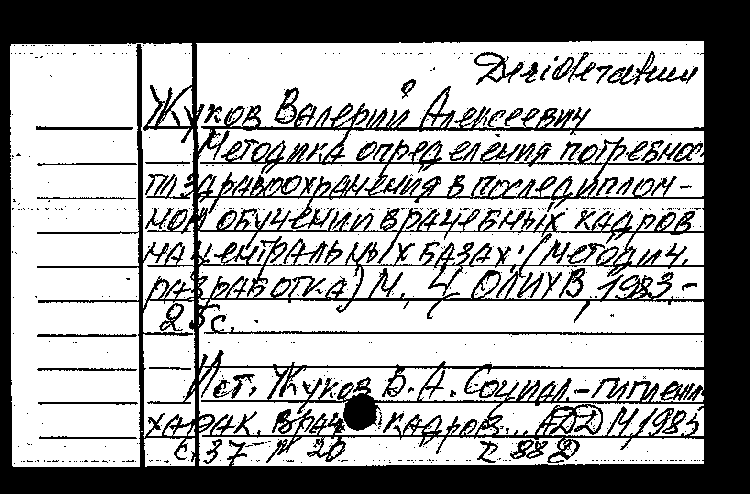 Desideratum
Жуков Валерий Алексеевич
Методика определения потребнос
ти здравоохранения в последиплом-
ном обучении врачебных кадров
на центральных базах: (Методич.
разработка) М., ЦОЛИУВ, 1983.-
25с.
Ист. Жуков В.А. Социал.-гигиен
харак. врач кадров... АДД М, 1985
с. 37 № 20 88